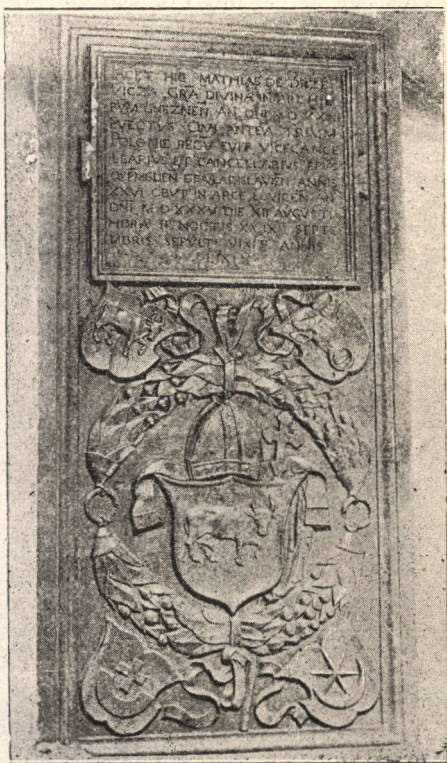 IACET HIC MATHIAS DE DRZE
VICZA GRA DIVINA IN ARCHIE
PVM GNEZNEN AN DNI M D XXXI
EVECTVS CVM ANTEA TRIVM
POLONIE REGV FVIT VICECANCE
LLARIVS ET CANCELLARIVS EPVS
Q PMISLIEN ET VLADISLAVIEN ANNIS
XXVI OBIIT IN ARCE LOVICEN AN
DNI M D XXXV DIE XII AVGVSTI
HORA II NOCTIS XXIX SEPTE
BRIS SEPVLT VIXIT ANNIS